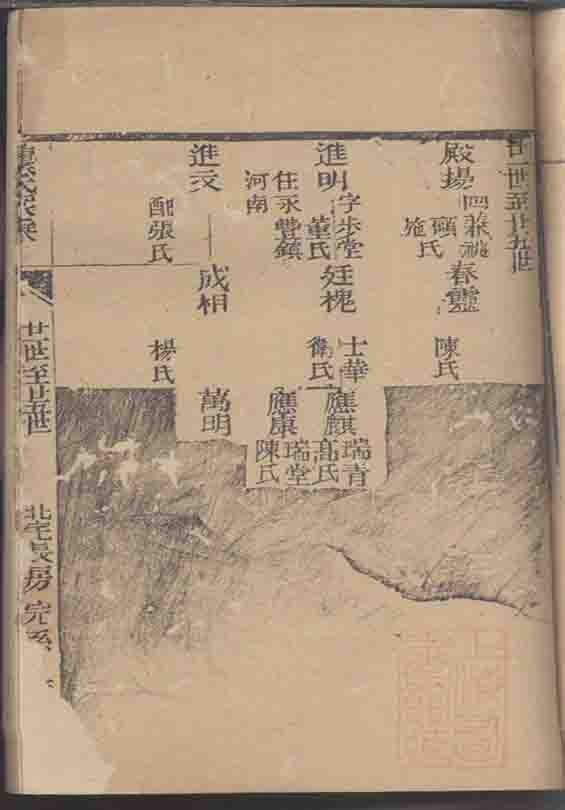 廿一世至廿五世
殿揚
四兼祧
碩氏
施氏
春靈
陳氏
進明
字步堂
董氏
住永豐鎮
河南
廷槐
士華
衛氏
應麒
瑞青
高氏
應康
瑞堂
陳氏
進文
配張氏
成相
楊氏
萬明
廿一世至廿五世
北宅長房
完系